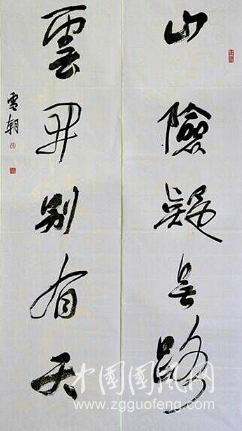 山險疑無路
雲開別有天
雪朝
中国国风网
www.zgguofeng.com